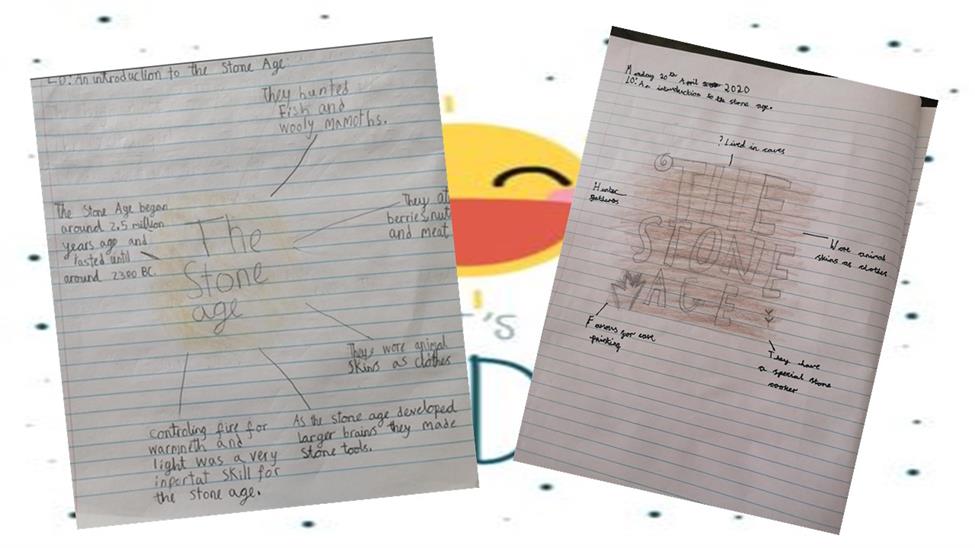 LO: An introduction to the Stone Age
They hunted
Fish and
wooly mamoths.
The Stone Age began
around 2.5 million
years ago and
lasted until
around 2300 BC.
The
Stone
age
They at
berries, nut
and meat
They wore animal
skins as clothes
Controling fire for
warmneth and
light was a very
inportat skill for
the stone age.
As the stone age developed
larger brains they made
stone tools.
Monday 20th April 2020
LO: An introduction to the stone age.
? Lived in caves
Hunter
THE
STONE
AGE
Wore animal
skins as clothes
Famous for cave
painting
They have
a special stone
cooker
T'S
D